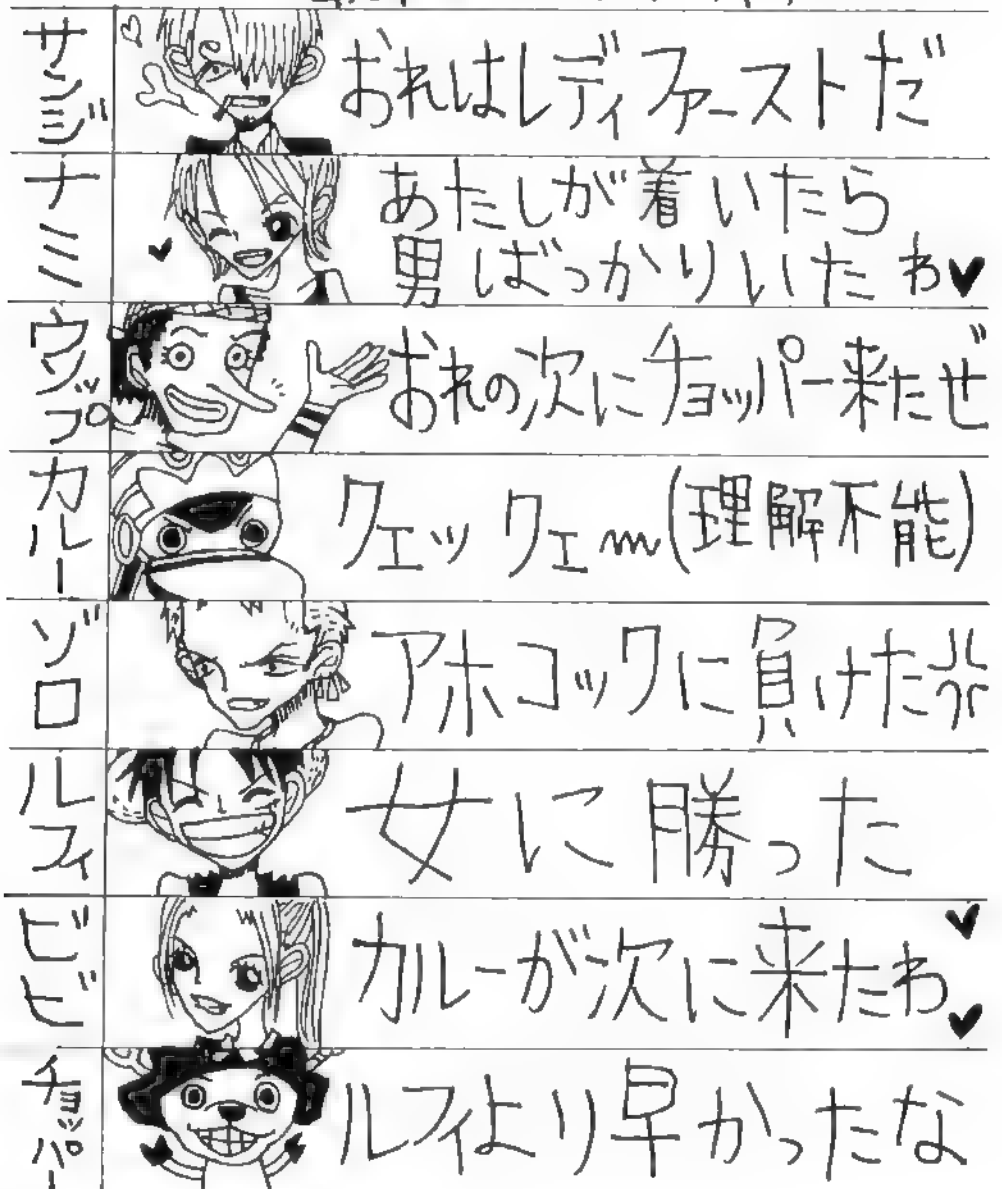 サンジ
おれはレディファーストだ
ナミ
あたしが着いたら
男ばっかりいたわ♥
ウソップ
おれの次にチョッパー来たぜ
カルー
クェックェ〰(理解不能)
ゾロ
アホコックに負けた
ルフィ
女に勝った
ビビ
カルーが次に来たわ♥♥
チョッパー
ルフィより早かったな